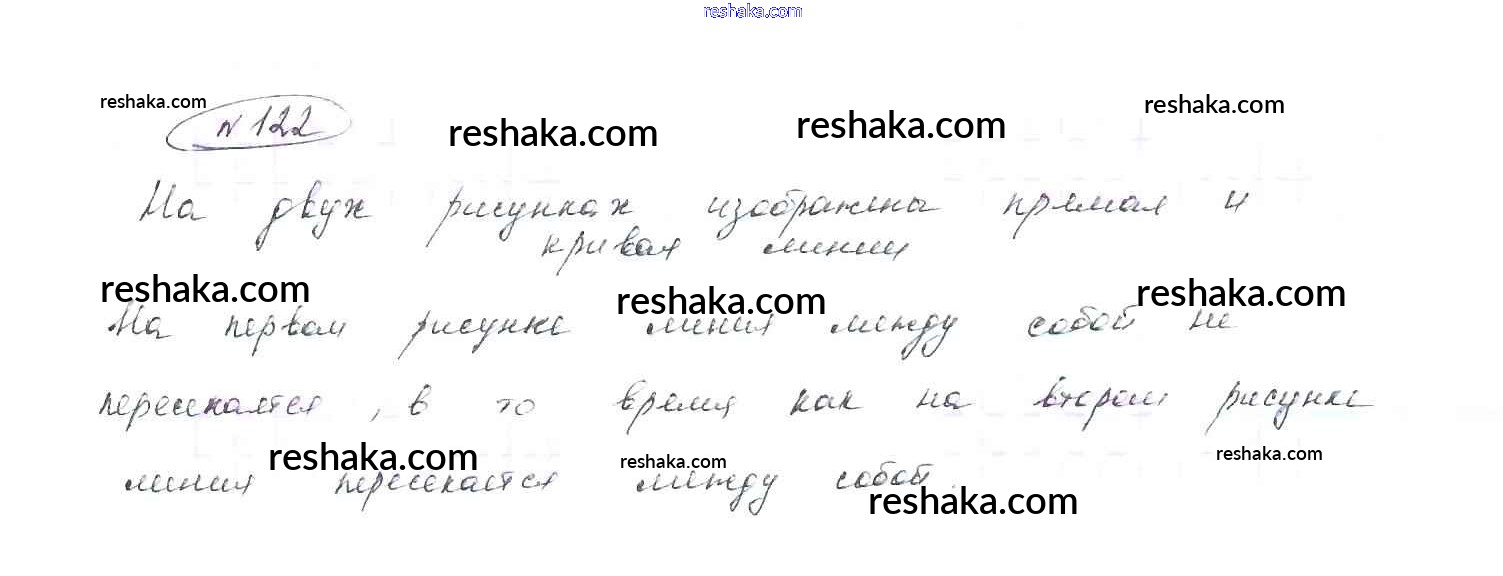 reshaka.com
reshaka.com
reshaka.com
N 122
reshaka.com
reshaka.com
На двух рисунках изображены прямая и
кривая линии
reshaka.com
reshaka.com
reshaka.com
На первом рисунке линия между собой не
пересекается, в то время как на втором рисунке
reshaka.com
reshaka.com
reshaka.com
линия пересекается между собой.
reshaka.com